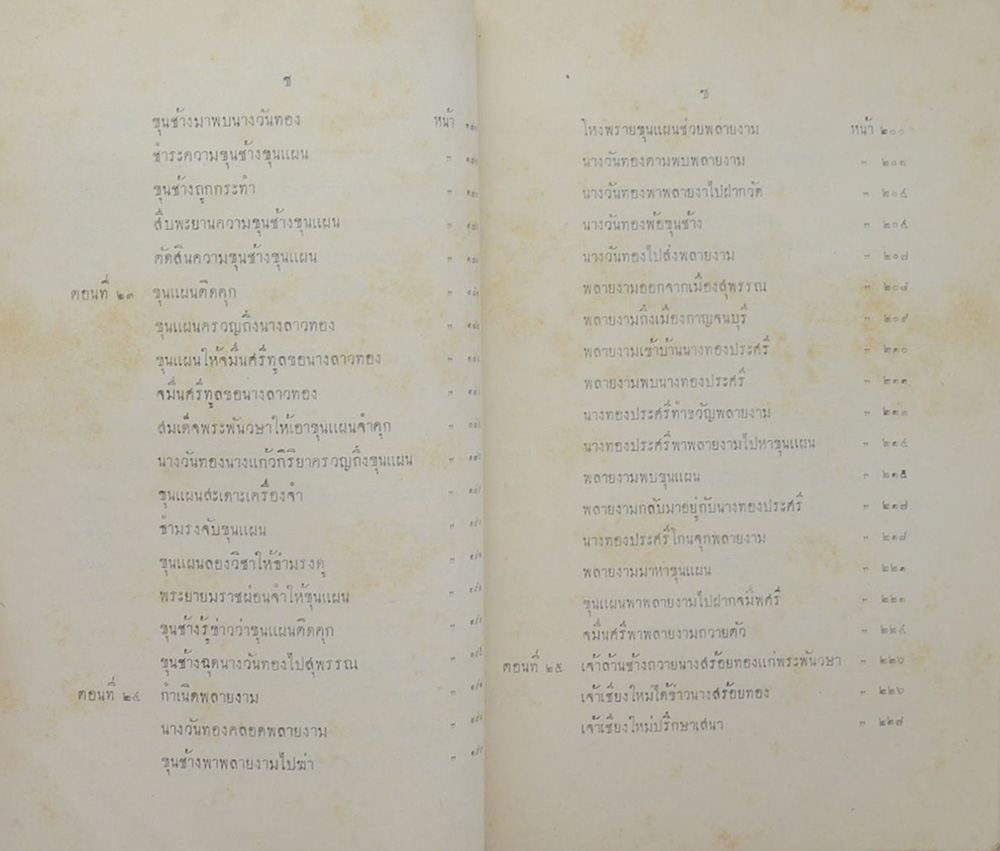 ช
ขุนช้างมาพบนางวันทอง หน้า
ชำระความขุนช้างขุนแผน "
ขุนช้างถูกกระทำ "
สืบพะยานความขุนช้างขุนแผน "
ตัดสินความขุนช้างขุนแผน "
ตอนที่ ๒๓ ขุนแผนติดคุก "
ขุนแผนครวญถึงนางลาวทอง "
ขุนแผนให้จมื่นศรีทูลขอนางลาวทอง "
จมื่นศรีทูลขอนางลาวทอง "
สมเด็จพระพันวษาให้เอาขุนแผนจำคุก "
นางวันทองนางแก้วกิริยาครวญถึงขุนแผน "
ขุนแผนสะเดาะเครื่องจำ "
ขำมรงจับขุนแผน "
ขุนแผนลองวิชาให้ขำมรงดู "
พระยายมราชผ่อนจำให้ขุนแผน "
ขุนช้างรู้ข่าวว่าขุนแผนติดคุก "
ขุนช้างฉุดนางวันทองไปสุพรรณ "
ตอนที่ ๒๔ กำเนิดพลายงาม "
นางวันทองคลอดพลายงาม "
ขุนช้างพาพลายงามไปฆ่า "
ซ
โหงพรายขุนแผนช่วยพลายงาม หน้า ๒๐๐
นางวันทองตามพบพลายงาม "
นางวันทองพาพลายงาไปฝากวัด " ๒๐๔
นางวันทองพ้อขุนช้าง " ๒๐๕
นางวันทองไปส่งพลายงาม " ๒๐๗
พลายงามออกจากเมืองสุพรรณ " ๒๐๘
พลายงามถึงเมืองกาญจนบุรี " ๒๐๙
พลายงามเข้าบ้านนางทองประศรี " ๒๑๐
พลายงามพบนางทองประศรี " ๒๑๑
นางทองประศรีทำขวัญพลายงาม "
นางทองประศรีพาพลายงามไปหาขุนแผน " ๒๑๔
พลายงามพบขุนแผน " ๒๑๕
พลายงามกลับมาอยู่กับนางทองประศรี " ๒๑๗
นางทองประศรีโกนจุกพลายงาม " ๒๑๘
พลายงามมาหาขุนแผน " ๒๒๑
ขุนแผนพาพลายงามไปฝากจมื่นศรี " ๒๒๑
จมื่นศรีพาพลายงามถวายตัว " ๒๒๔
ตอนที่ ๒๕ เจ้าล้านช้างถวายนางสร้อยทองแก่พระพันวษา " ๒๒๖
เจ้าเชียงใหม่ได้ข่าวนางสร้อยทอง " ๒๒๖
เจ้าเชียงใหม่ปรึกษาเสนา " ๒๒๗